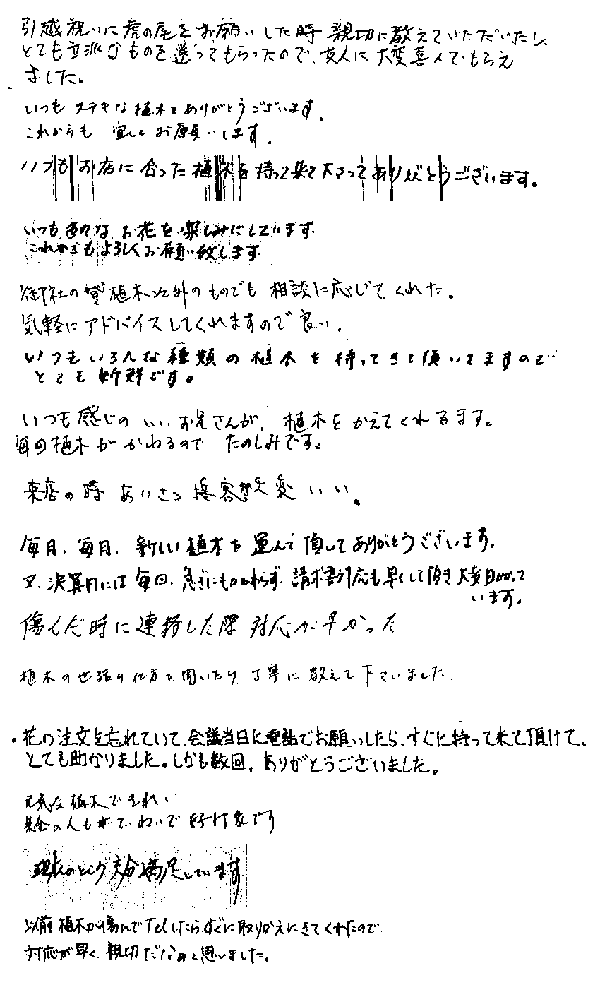 引越祝いに虎の尾をお願いした時 親切に教えていただいたし、
とても立派なものを送ってもらったので、友人に大変喜んでもらえ
ました。
いつも ステキな植木をありがとうございます。
これからも 宜しくお願いします。
いつもお店に合った植木を持って来て下さってありがとうございます。
いつも色々な お花を楽しみにしています
これからもよろしくお願い致します
御社の貸植木以外のものでも 相談に応じてくれた。
気軽にアドバイスしてくれますので良い。
いつもいろんな種類の植木を持ってきて頂いてますので
とても新鮮です。
いつも感じの いい お兄さんが、植木をかえてくれます。
毎回植木が かわるので たのしみです。
来店の時 あいさつ 接客態度 大変 いい。
毎月、毎月、新しい植木を運んで頂してありがとうございます。
又、決算月には毎回、急にもかかわらず 請求書対応も早くして頂き 大変助かって
います。
傷んだ時に連絡した際 対応が早かった
植木の世話の仕方を聞いたり 丁寧に教えて下さいました
・花の注文を忘れていて、会議当日に電話でお願いしたら、すぐに持って来て頂けて、
とても助かりました。しかも数回、ありがとうございました。
元気な植木できれい
現在のところ充分満足しています
以前 植木が傷んでTelしたらすぐに取りかえにきてくれたので
対応が早く、親切だなぁと思いました。